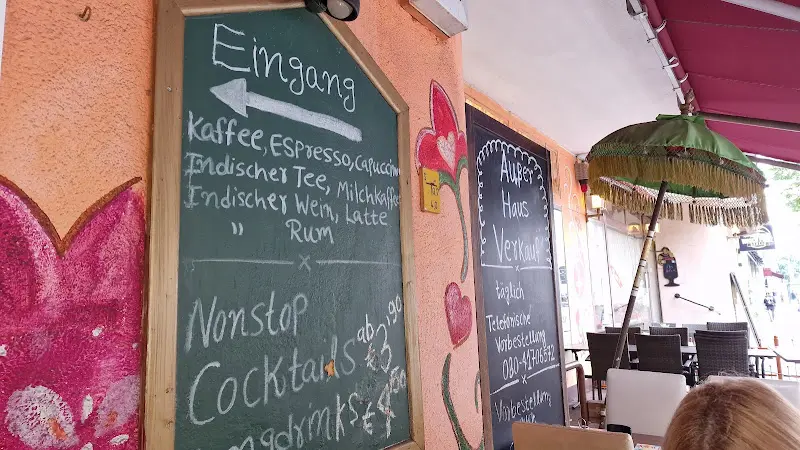 Eingang
Kaffee, Espresso, Capuccino
Indischer Tee, Milchkaffee
Indischer Wein, Latte
" Rum
Nonstop
Cocktails ab € 3,90
€ 4,50
Außer
Haus
Verkauf
täglich
Telefonische
Vorbestellung
030-41706572
Vorbestellung